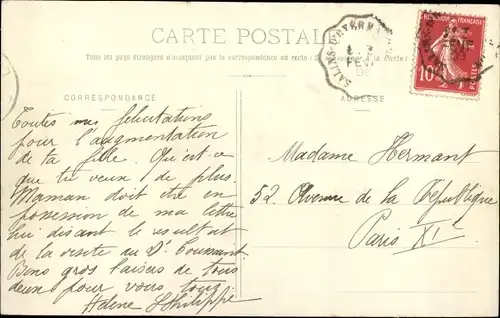 CARTE POSTALE
Tous les pays étrangers n'acceptent pas la correspondance au recto (
à la Poste)
CORRESPONDANCE
ADRESSE
RÉPUBLIQUE FRANÇAISE
10
POSTES
FEVR
08
Toutes mes félicitations
pour l'augmentation
de ta fille. Qu'est-ce
que tu veux de plus.
Maman doit être en
possession de ma lettre
lui disant le résultat
de la visite au Dr Toussaint.
Bons gros baisers de tous
deux pour vous tous.
Philippe
Madame Hermant
52, Avenue de la République
Paris XIe